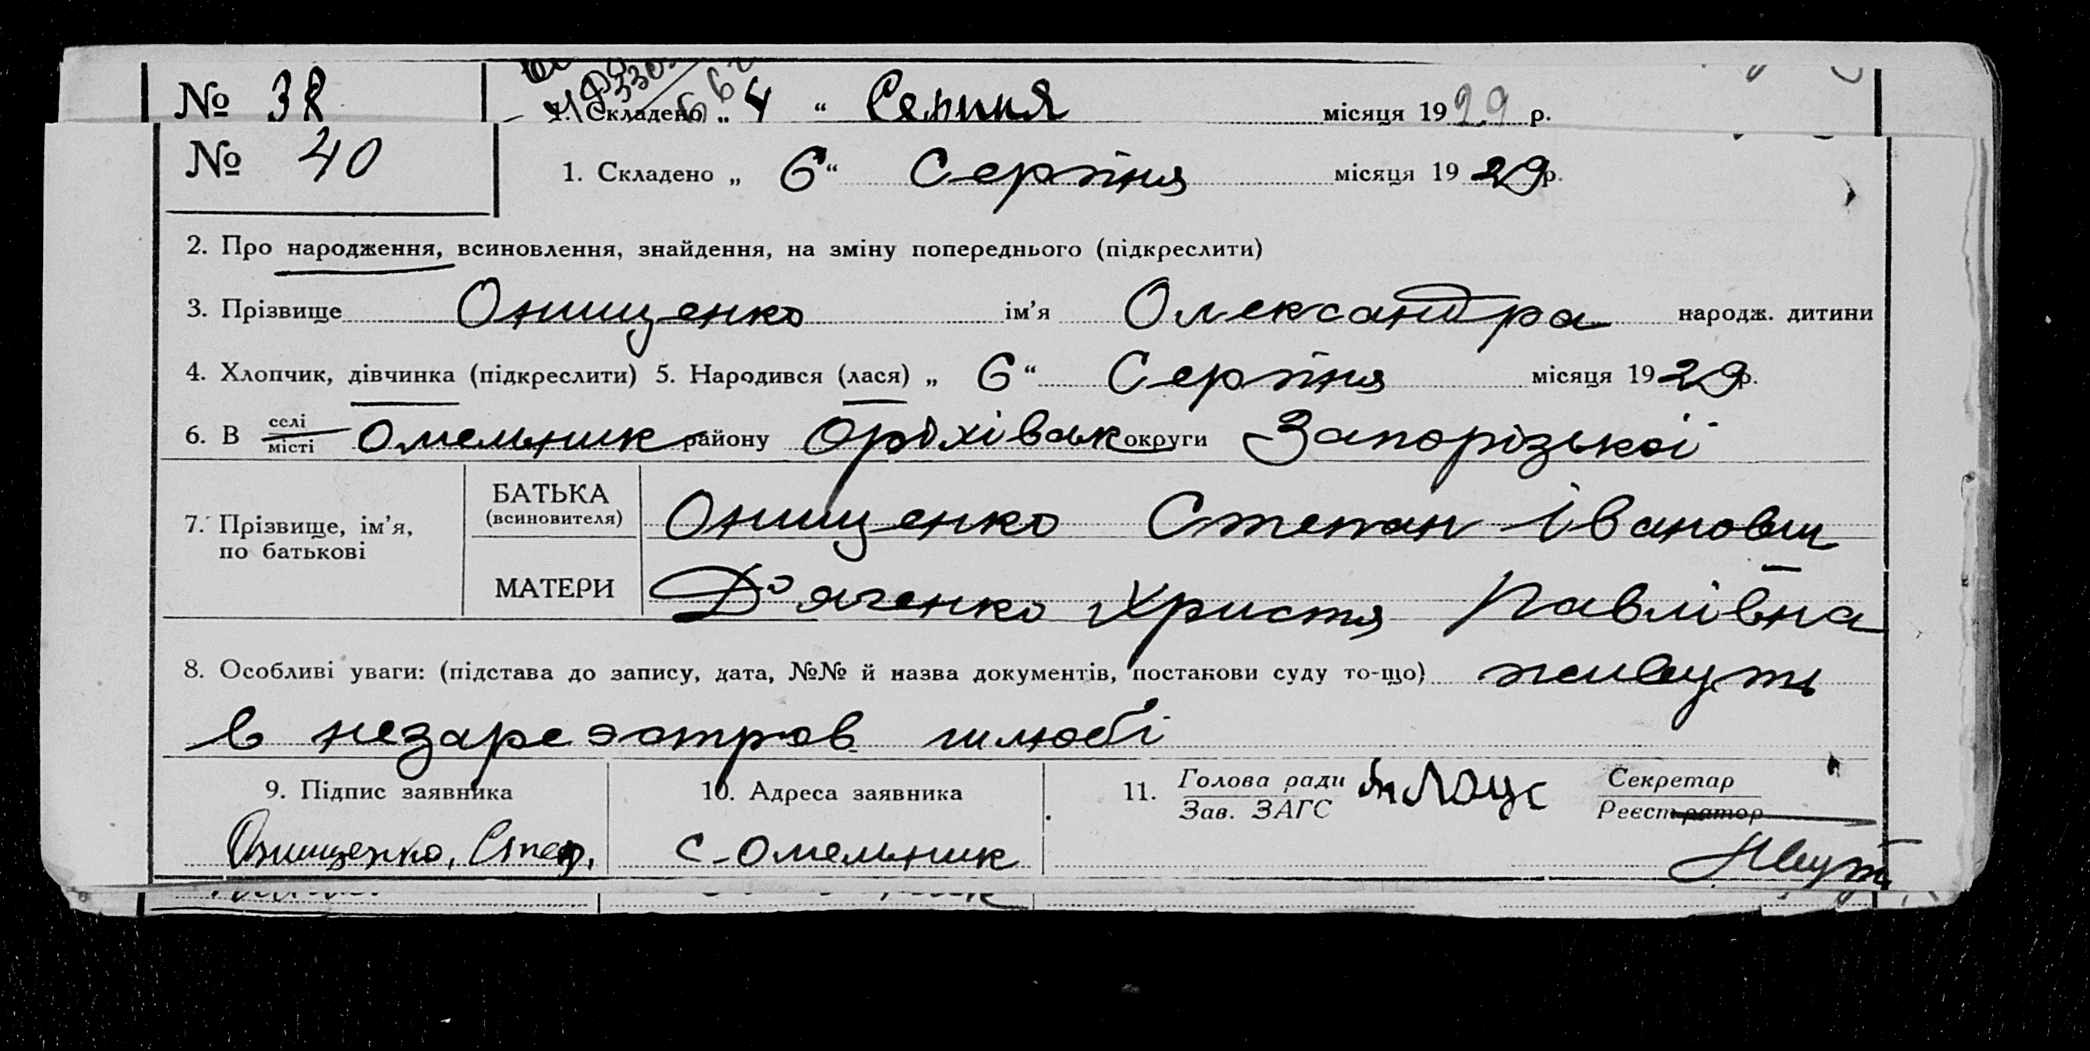 № 38 1. Складено „ 4 “ Серпня місяця 1929 р.
№ 40 1. Складено „ 6 “ Серпня місяця 1929 р.
2. Про народження, всиновлення, знайдення, на зміну попереднього (підкреслити)
3. Прізвище Онищенко ім’я Олександра народж. дитини
4. Хлопчик, дівчинка (підкреслити) 5. Народився (лася) „ 6 “ Серпня місяця 1929 р.
6. В селі місті Омельник району Оріхівськ округи Запорізької
7. Прізвище, ім’я, по батькові
БАТЬКА (всиновителя) Онищенко Степан Іванович
МАТЕРИ Д’яченко Христя Павлівна
8. Особливі уваги: (підстава до запису, дата, №№ й назва документів, постанови суду то-що) живуть
в незареэстров шлюбі
9. Підпис заявника 10. Адреса заявника 11. Голова ради Зав. ЗАГС Секретар Реєстратор
Онищенко, Степ. с-Омельник